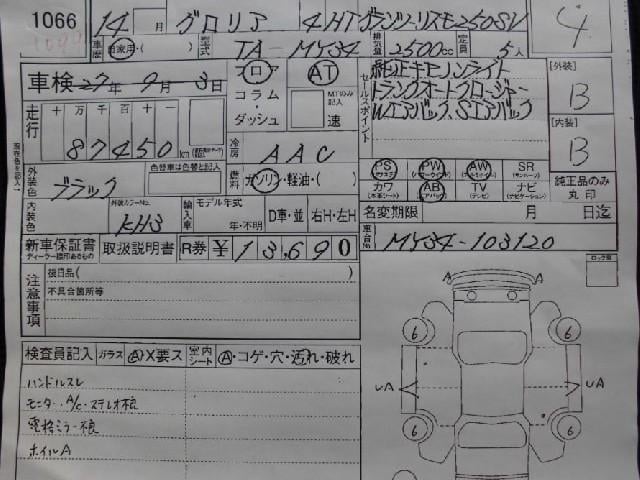 1066
14 月 グロリア 4HT グランツーリスモ250SV
車歴 自家用・( ) 型式 TA-MY34 排気量 2500cc 定員 5人
4
車検 27年 9月 3日 フロア AT
コラム・ダッシュ MTのみ記入 速
セールスポイント 純正キセノンライト
トランクオートクロージャー
Wエアバック、Sエアバック
[外装] B
[内装] B
走行 十万千百十 87450 km
冷房 AAC
外装色 ブラック 色替車は色替と記入
燃料 ガソリン・軽油・( )
PS PW AW SR
カワ AB TV ナビ
純正品のみ丸印
内装色 外装カラーNo. KH3 輸入車 モデル年式 年・不明 D車・並 右H・左H
名変期限 月 日迄
新車保証書 取扱説明書 R券 ¥13,690
車台No. MY34-103120
ロック数
注意事項 後日品( )
不具合箇所等
検査員記入 ガラス A X要ス 室内シート A・コゲ・穴・汚れ・破れ
ハンドルスレ
モニター・A/C・ステレオ不良
電格ミラー不良
ホイルA
6 6
UA UA
6 6